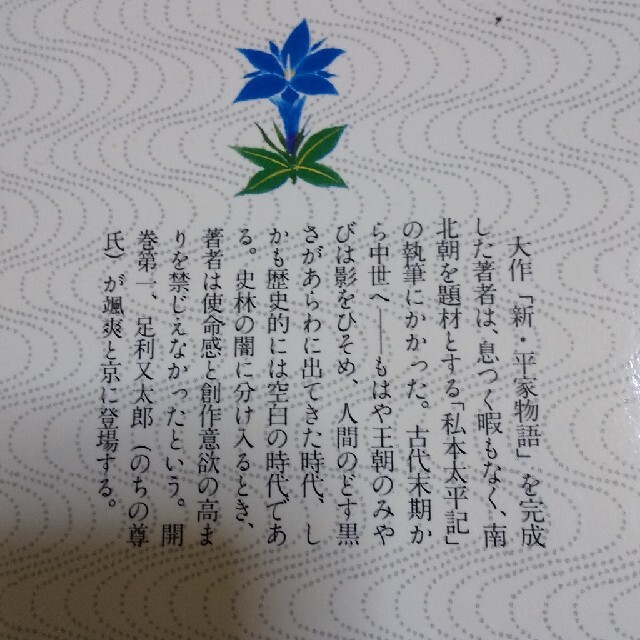 大作「新・平家物語」を完成
した著者は、息つく暇もなく、南
北朝を題材とする「私本太平記」
の執筆にかかった。古代末期か
ら中世へ――もはや王朝のみや
びは影をひそめ、人間のどす黒
さがあらわに出てきた時代、し
かも歴史的には空白の時代であ
る。史林の闇に分け入るとき、
著者は使命感と創作意欲の高ま
りを禁じえなかったという。開
巻第一、足利又太郎（のちの尊
氏）が颯爽と京に登場する。